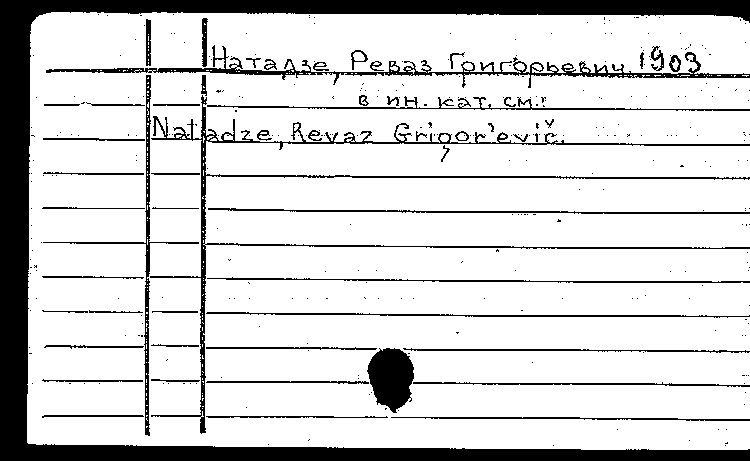 Натадзе, Реваз Григорьевич, 1903
в ин. кат. см.:
Natadze, Revaz Grigor'evič.